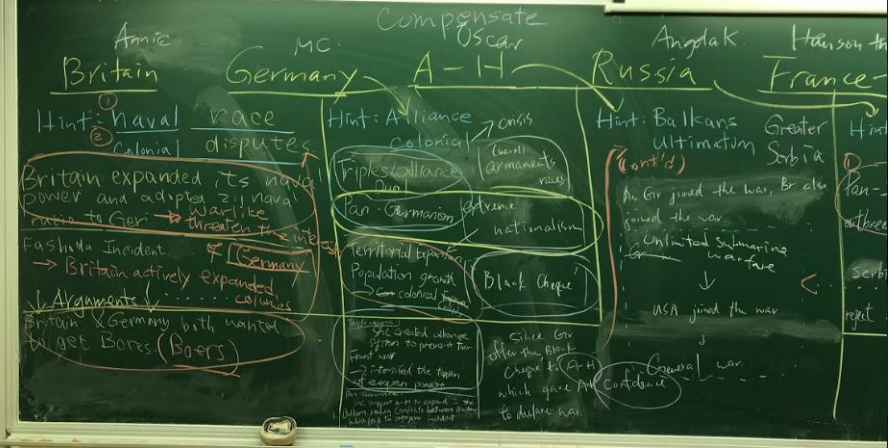 Compensate
Annie
MC.
Oscar
Angdak
Hanson
Britain
Germany
A-H
Russia
France
Hint: ① naval race
② Colonial disputes
Britain expanded its naval
power and adopted 2:1 naval
ratio to Ger → warlike
threaten the
Fashoda Incident
Germany
→ Britain actively expanded
colonies
↓ Arguments ↓
Britain & Germany both wanted
to get Bores (Boers)
Hint: Alliance
colonial → crisis
Triple alliance
Dual
(naval)
armaments
races
Pan-Germanism
extreme
nationalism
Territorial Expansion
Population growth
→ colonial
Blank Cheque
created alliance
system to prevent two
front war
→ intensified the
of european powers
Since Gr
offer the Blank
cheque to A-H
which gave AH Confidence
to declare war.
Hint: Balkans
ultimatum
Greater
Serbia
(Cont'd)
As Gr joined the war, Br also
joined the war.
Unlimited submarine
warfare
↓
USA joined the war
↓
General war
①
Pan-
outbreak
Serbi
reject